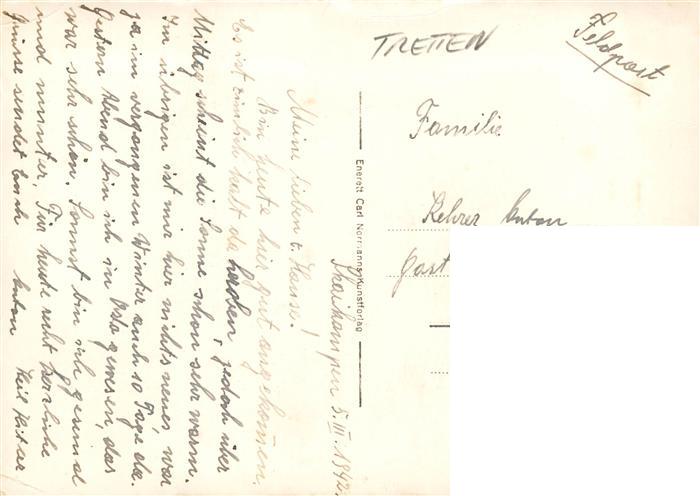 TRETTEN
Feldpost
Familie
Kehrer Anton
Gast
Enerett Carl Normanns Kunstforlag
Skeikampen 5.III.1942.
Meine lieben z. Hause!
Bin heute hier gut angekommen.
Es ist ziemlich kalt da heroben, jedoch über
Mittag scheint die Sonne schon sehr warm.
Im übrigen ist mir hier nichts neues, war
ja im vergangenen Winter auch 10 Tage da.
Gestern Abend bin ich in Oslo gewesen, das
war sehr schön. Sonst bin ich gesund
und munter. Für heute recht herzliche
Grüsse sendet Euch Anton Heil Hitler